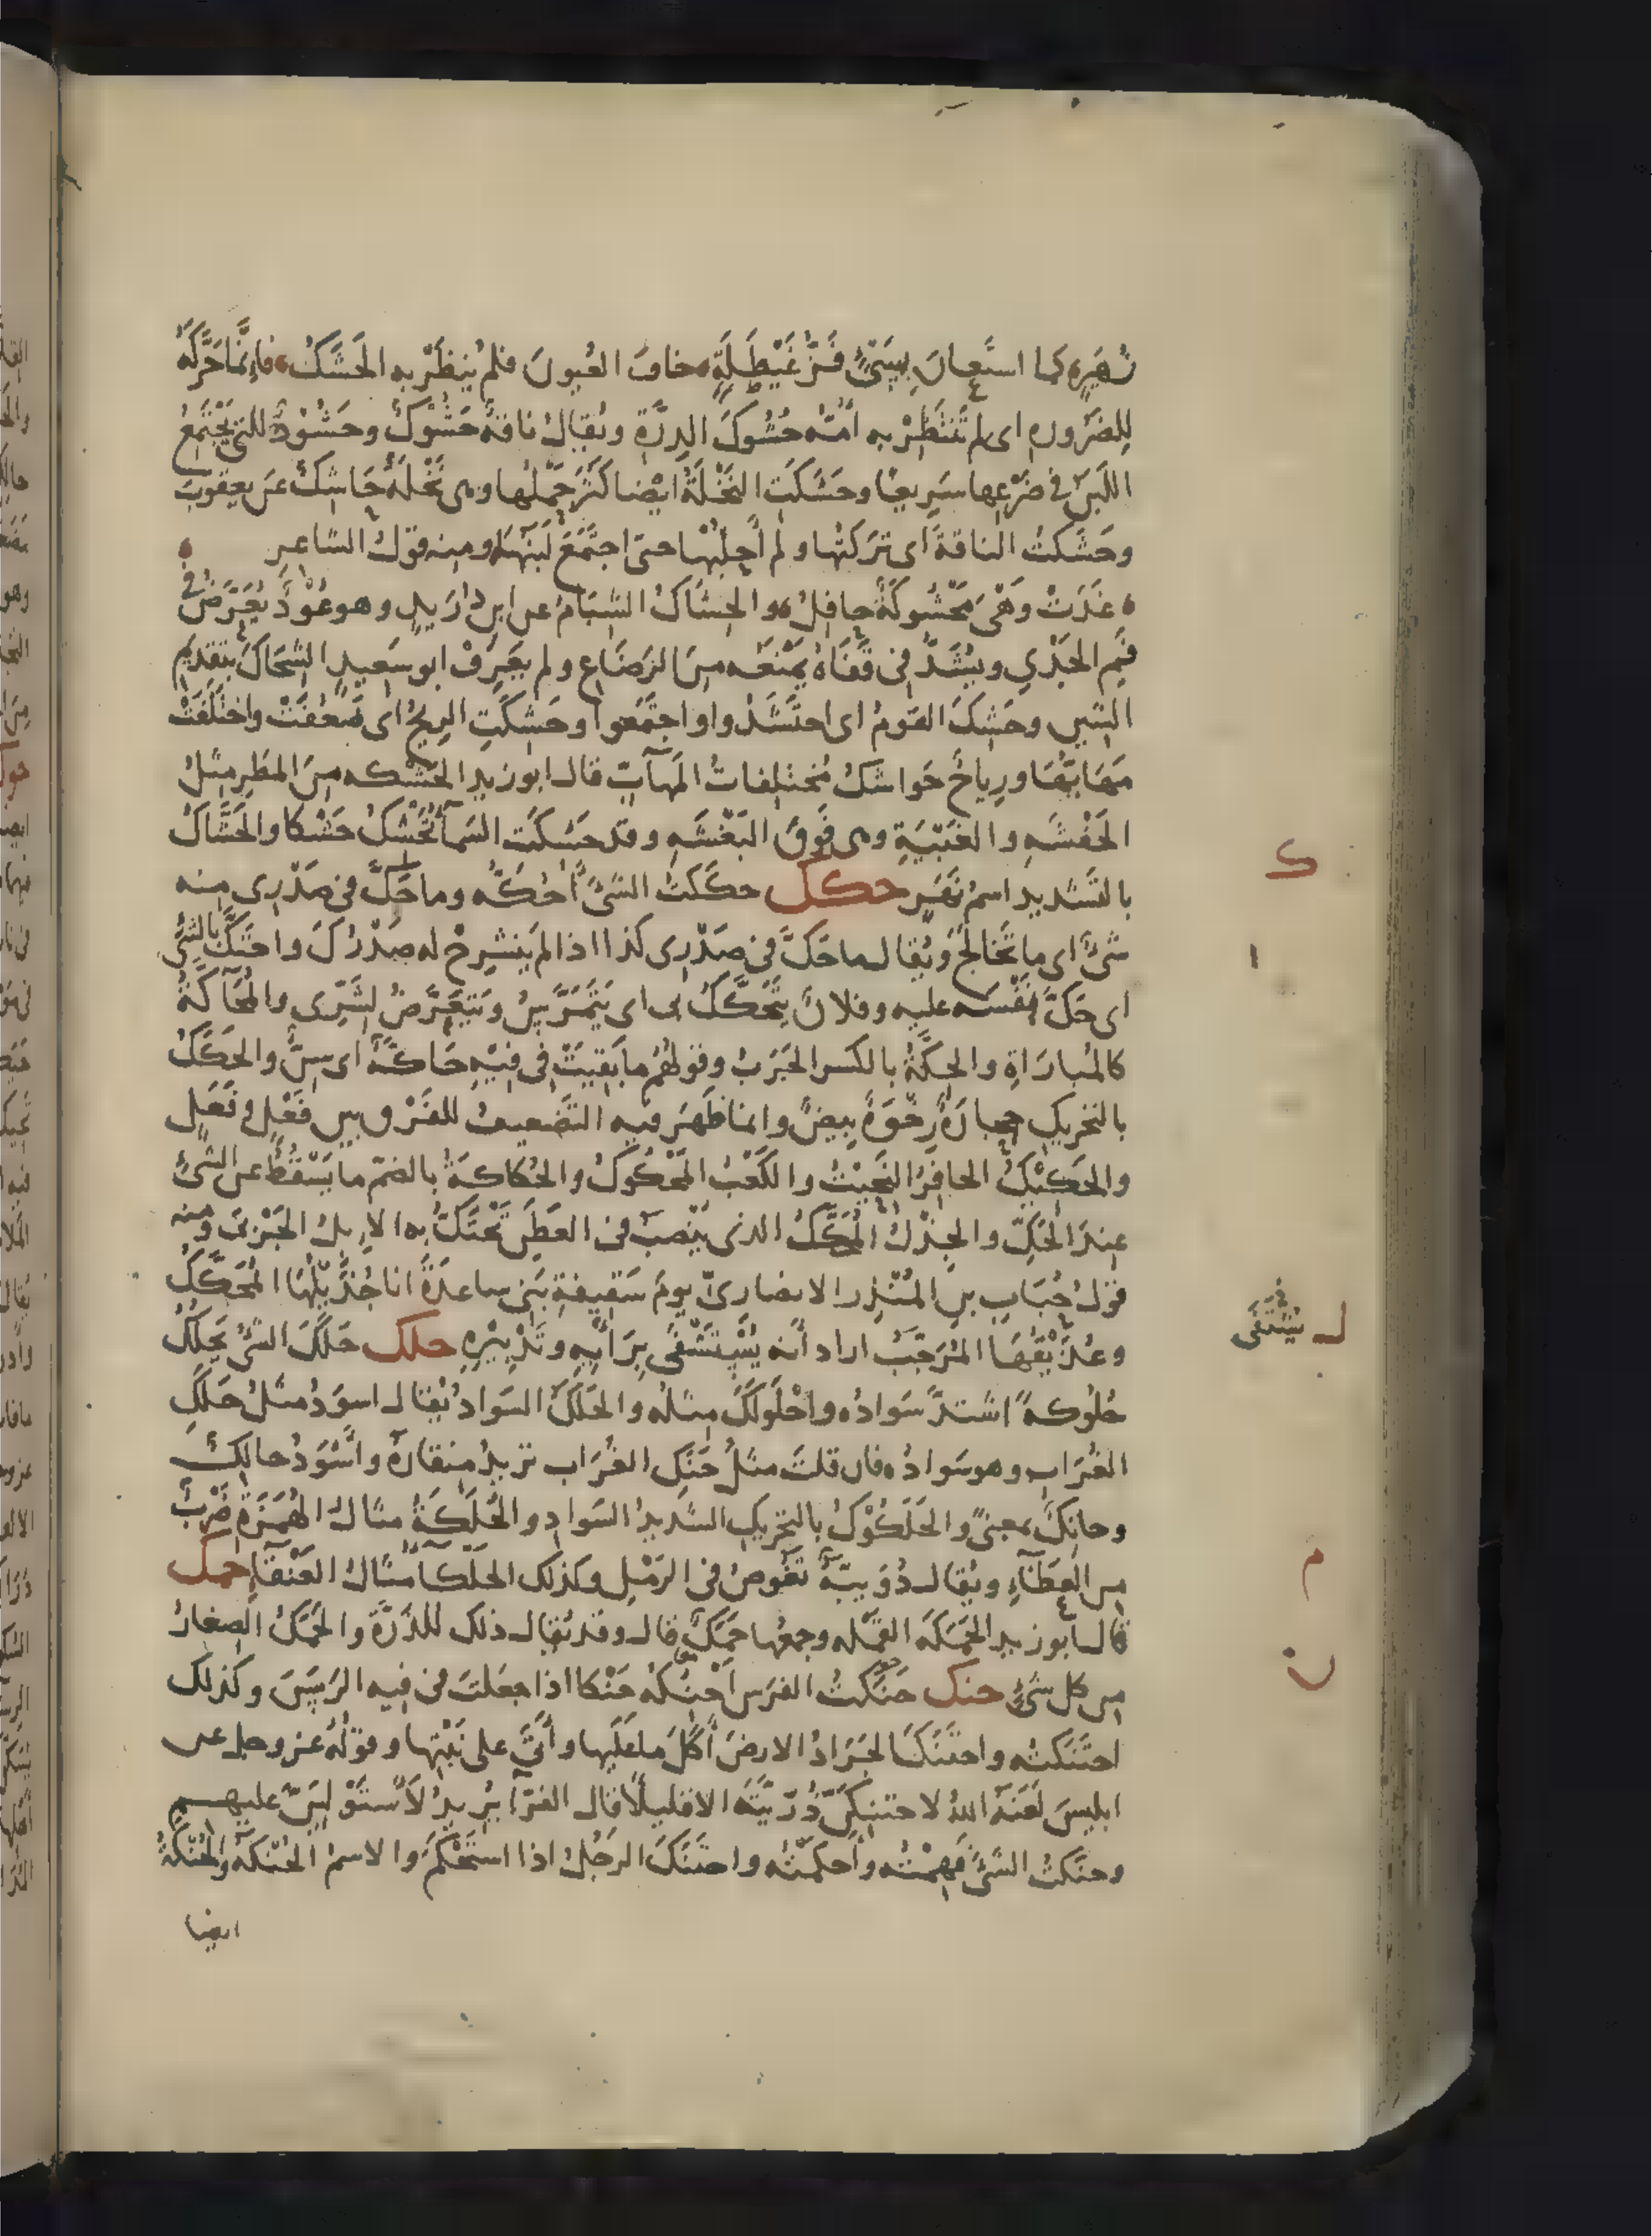 زُهَيْرٍ كما استَعانَ بِسَيْئٍ فَزُّ غَيْطَلَةٍ خافَ العُيونَ فلم يُنظَرْ به الحَشَكُ فإنَّما حَرَّكَهُ
لِلضَرُوره اى لم تَنتَظِرْ به أُمُّه حُشُوكَ الدِرَّةِ ويُقالُ ناقةٌ حَشُوكٌ وحَشُوْدٌ للتى يَجْتَمِعُ
اللَبَنُ فى ضَرْعِها سَرِيعًا وحَشَكَتِ النَخْلَةُ ايْضا كَثُرَ حَمْلُها وهى نَخْلَةٌ حَاشِكٌ عَن يعقوبَ
وحَشَكتُ الناقةَ اى تَرَكتُها ولم أَحلِبْها حتى اجتَمَعَ لَبَنُها ومنه قولُ الشاعِرِ
غَدَتْ وَهْىَ مَحْشُوكَةٌ حافِلٌ والحِشاكُ الشِبَامُ عن ابنِ دُرَيدٍ وهو عُوْدٌ يُعَرَّضُ فى
فَمِ الجَدْىِ ويُشَدُّ فى قَفَاهُ يَمْنَعُه مِنَ الرَضَاعِ ولم يعرِفْ ابو سَعِيدٍ الشِحَاكَ بتَقدِيمِ
الشين وحَشَكَ القَومُ اى احتَشَدُوا واجتَمَعوا وحَشَكَتِ الرِيحُ اى ضَعُفَتْ واختَلَفَتْ
مَهَابُّهَا ورِياحٌ حَواشكُ مُختلِفاتُ المَهَآبّ قال ابو زيدٍ الحَشْكه مِنَ المطَرِ مِثلُ
الحَفْشَه والغَبْيَةِ وهى فَوقَ البَغْشَه وقد حَشكَت السَمآءُ تَحْشكُ حَشْكا والحَشَّاكُ
بالتَشديد اسمُ نَهَرٍ حكك حكَكتُ الشئَ أَحُكُّه وما حَكَّ فى صَدْرِى منه
شَئٌ اى ما تَخالَجَ ويُقال ما حَكَّ فى صَدْرِى كذا اذا لم يَنشرِحْ له صَدْرُكَ واحتَكَّ بالشئِ
اى حَكَّ نَفْسَه عليه وفلانٌ يتَحكَّكُ بى اى يَتَمَرَّسُ ويَتَعَرَّضُ لشَرِّى والمُحَآكَّةُ
كالمُباراةِ والحِكَّةُ بالكسر الجَرَبُ وقولُهُم ما بَقِيَتْ فى فِيْهِ حَاكَّةٌ اى سِنٌّ والحَكَكُ
بالتحريك حجارَةٌ رِخْوَةٌ بِيضٌ وانما ظَهَرَ فيه التَضعيفُ للفَرْق بين فَعْلٍ و فَعَلٍ
والحَكِيْكُ الحافرُ النَحِيْتُ والكَعْبُ المَحْكُوكُ والحُكاكَةُ بالضمّ ما يَسْقُطُ عن الشئِ
عِندَ الحَكِّ والجِذْلُ المُحكَّكُ الذى يُنْصَبُ فى العَطَنِ تَحْتَكُّ به الاِبلُ الجَرْبَى ومنه
قولُ حُبَابِ بنِ المُنْذِر الانصارىّ يومَ سَقِيفةِ بَنى ساعدَةَ انا جُذَيْلُهَا المُحَكَّكُ
وعُذَيْقُهَا المُرَجَّبُ اراد أنه يُسْتَشْفَى بِرَأْيِهِ وتَدْبِيْرِهِ حلك حَلَكَ الشئُ يَحلُكُ
حُلُوكةً اشتدَّ سَوادُه واحْلَولَكَ مِثلُه والحَلَكُ السَوادُ يُقال اسوَدُ مثلُ حَلَكِ
الغُرَابِ وهو سَوادُه فان قلتَ مثلُ حَنَكِ الغُرَاب تريدُ مِنقارَهُ وأَسْوَدُ حالِكٌ
وحانِكٌ بمعنىً والحَلَكُوْكُ بالتحريكِ الشَديدُ السَوادِ والحُلَكَةُ مثالُ الهُمَزَةِ ضَرْبٌ
من العَظَآءِ ويُقال دُوَيبّةٌ تَغُوصُ فى الرَمْلِ وكذلك الحَلكآءُ مثالُ العَنْقَآءِ حمك
قال أبو زيد الحَمَكَه القَمْله وجمعُها حَمَكٌ قال وقد يُقال ذلك للذَرَّةِ والحَمَكُ الصِغارُ
مِن كل شَئٍ حنك حَنَكتُ الفرَسَ أحْنُكهُ حَنْكا اذا جعَلتَ فى فيهِ الرَسَنَ وكذلك
احتَنَكتُه واحتَنَكَ الجَرَادُ الارضَ أَكَلَ ما عَلَيها وأَتَى على نَبْتِها وقولُهُ عز وجل عن
ابليسَ لَعَنَهُ اللهُ لاحتنِكنَّ ذُرّيّتَهُ الا قليلًا قال الفَرّآءُ يُرِيدُ لأَسْتَوْلِيَنّ عليهم
وحنَكتُ الشَئَ فَهِمْتُه وأَحكَمْتُه واحتَنَكَ الرَجُلُ اذا استَحْكَمَ والاسمُ الحُنْكه والحُنُكةُ
ايضا
ك
ا
ل يُشْتَفَى
م
ن